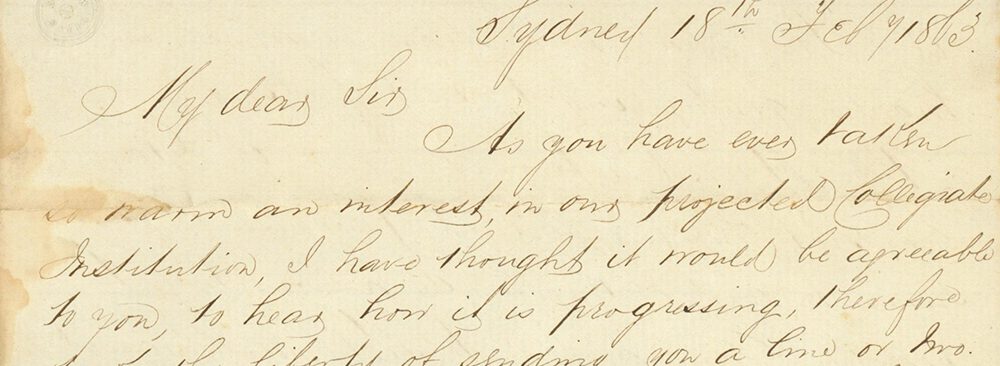 Sydney 18th Feby 1863.
My dear Sir
As you have ever taken
so warm an interest, in our projected Collegiate
Institution, I have thought it would be agreeable
to you, to hear how it is progressing, therefore
liberty of sending you a line or two.